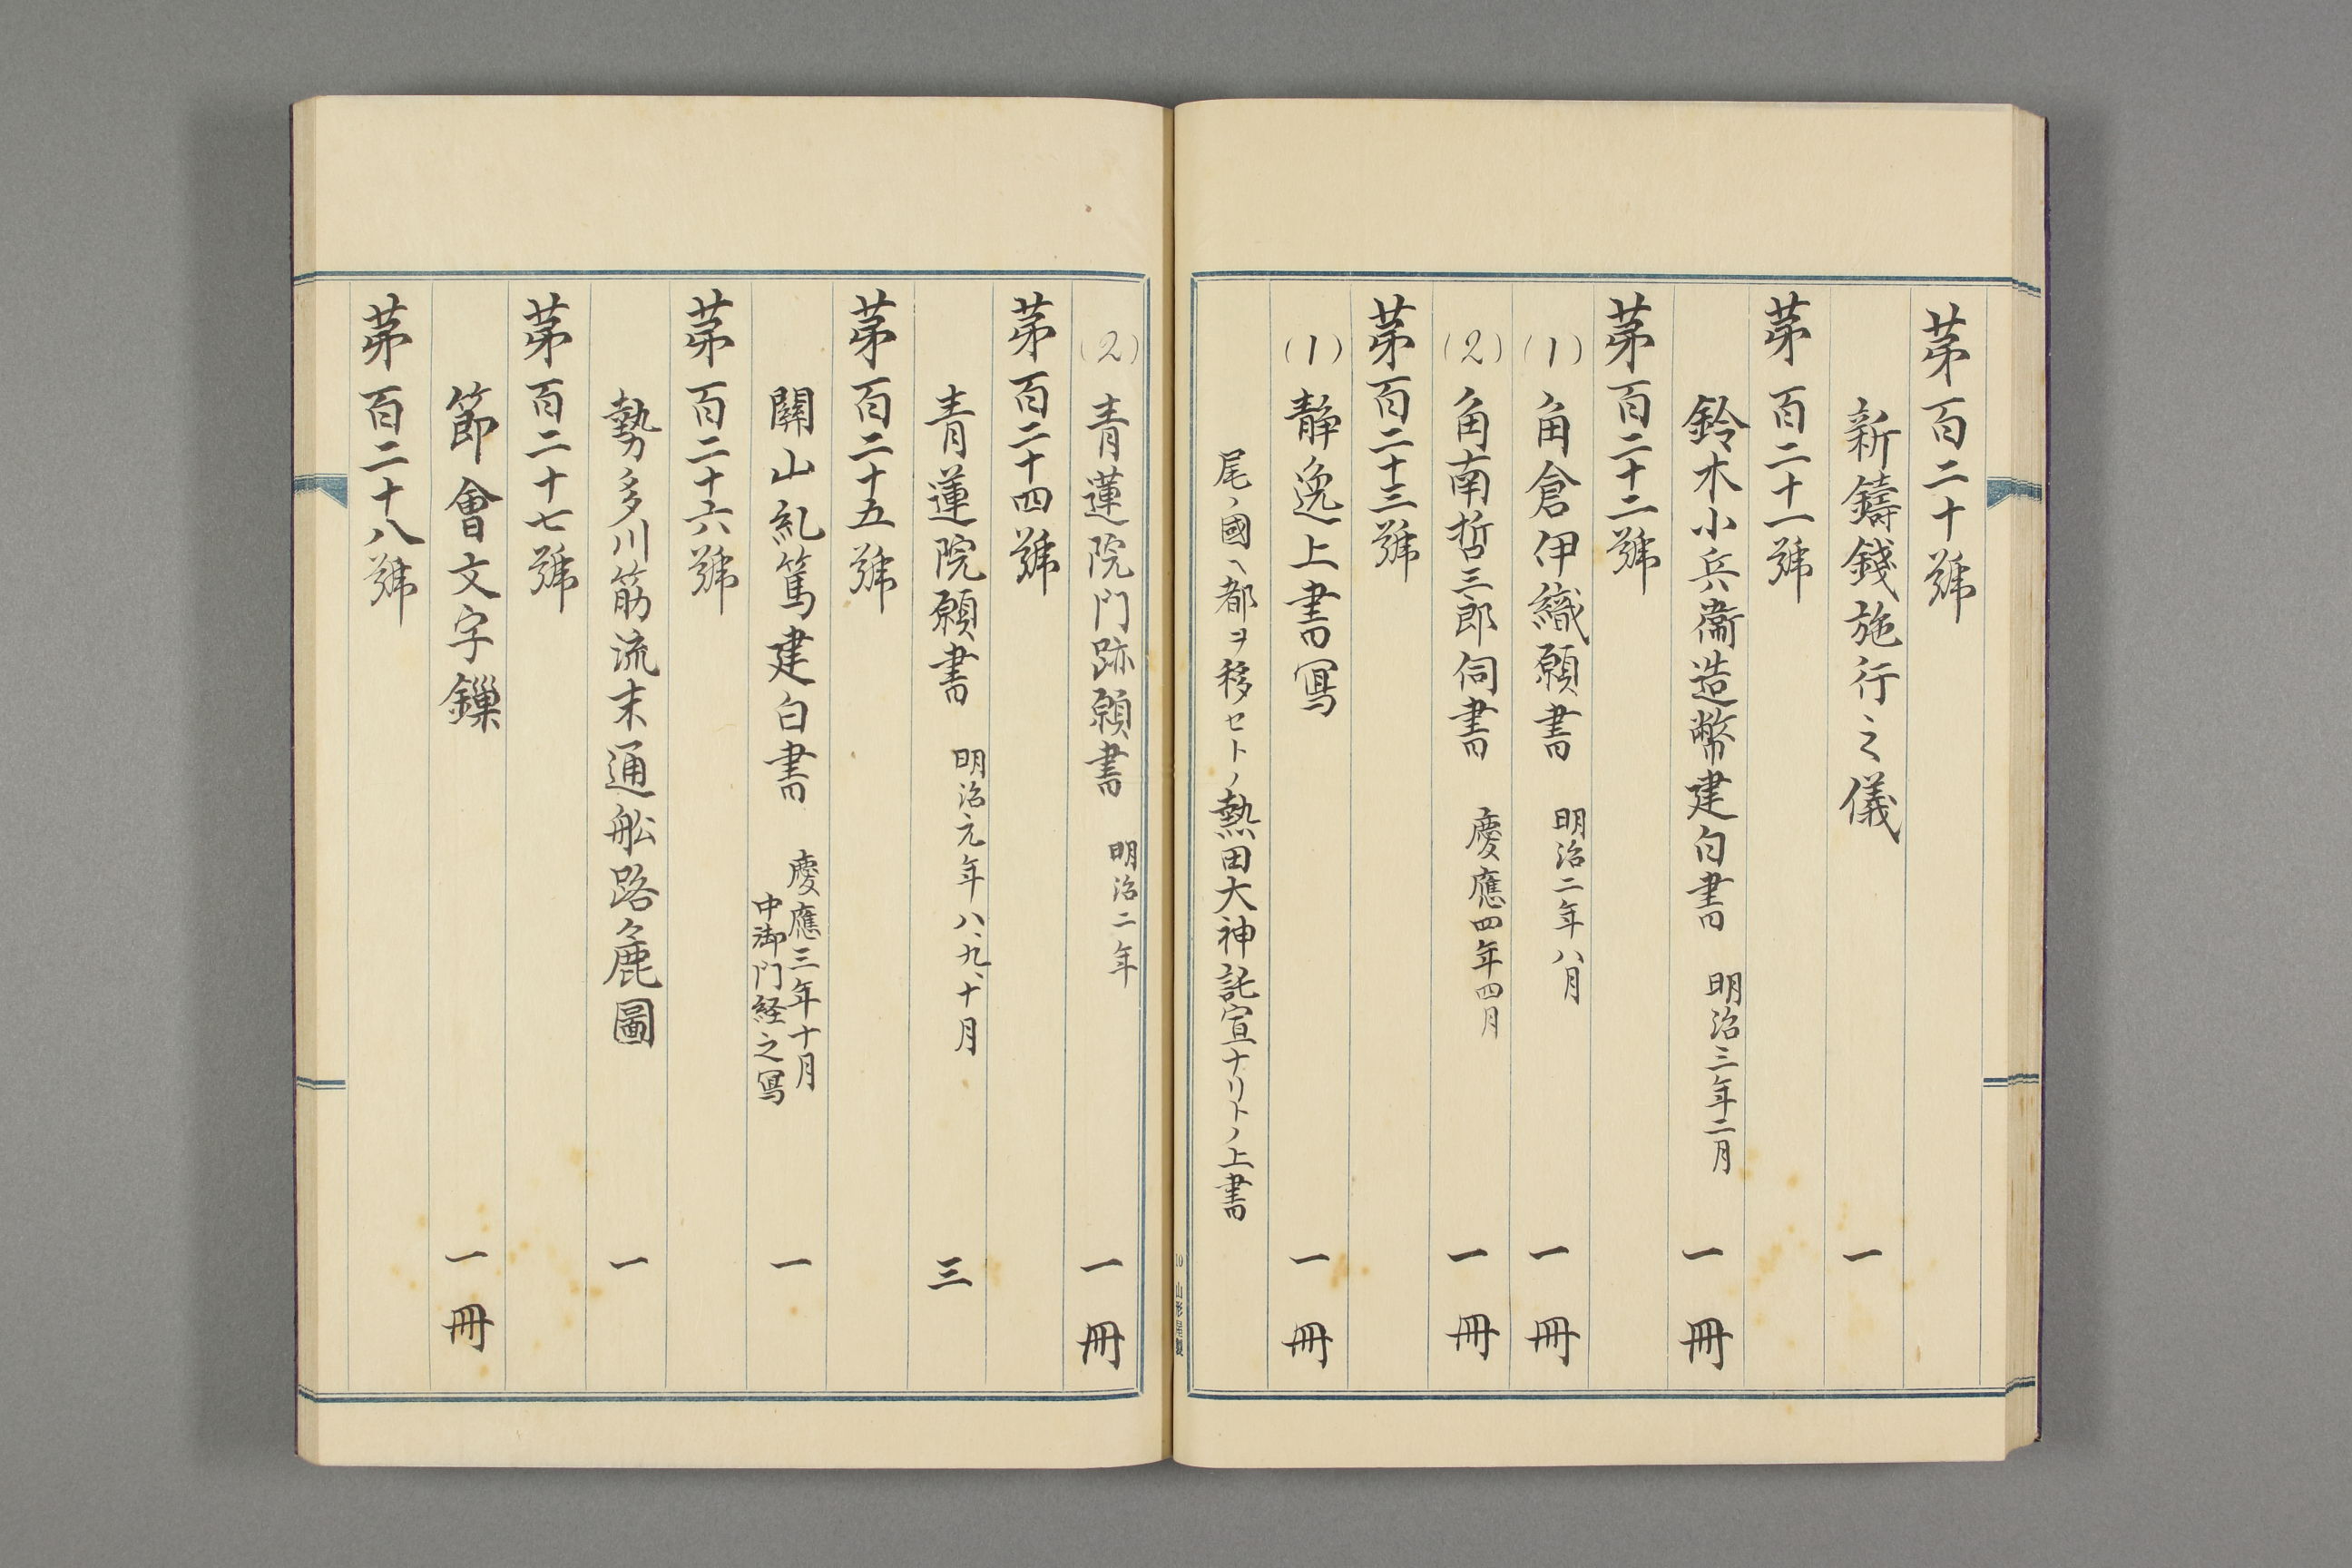 第百二十號
新鑄錢施行之儀 一
第百二十一號
鈴木小兵衞造幣建白書 明治三年二月 一冊
第百二十二號
(1) 角倉伊織願書 明治二年八月 一冊
(2) 角南哲三郎伺書 慶應四年四月 一冊
第百二十三號
(1) 静逸上書寫 一冊
尾ノ國ヘ都ヲ移セトノ熱田大神託宣ナリトノ上書
10 山形屋製
(2) 青蓮院門跡願書 明治二年 一冊
第百二十四號
青蓮院願書 明治元年八、九、十月 三
第百二十五號
關山糺篤建白書 慶應三年十月 一
中御門経之寫
第百二十六號
勢多川筋流末通舩路麁圖 一
第百二十七號
節會文字鏁 一冊
第百二十八號